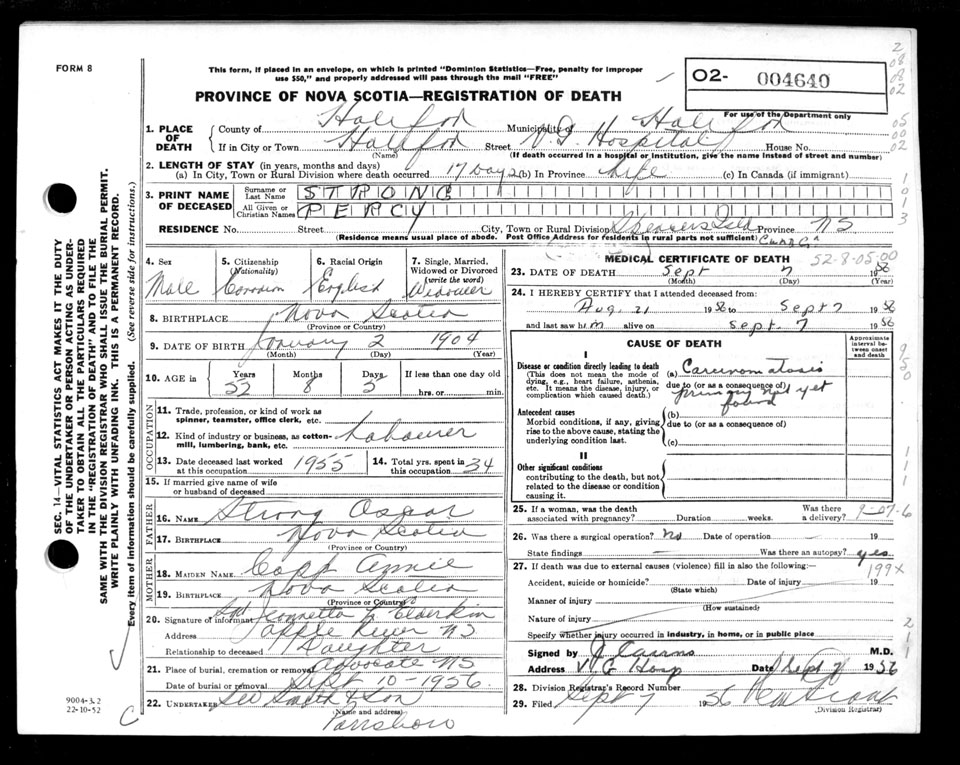 FORM 8
This form, if placed in an envelope, on which is printed "Dominion Statistics—Free, penalty for improper
use $50," and properly addressed will pass through the mail "FREE"
PROVINCE OF NOVA SCOTIA—REGISTRATION OF DEATH
02- 004640
For use of the Department only
1. PLACE OF DEATH { County of Halifax Municipality of Halifax
If in City or Town Halifax Street V.G. Hospital House No.
(Name) (If death occurred in a hospital or institution, give the name instead of street and number)
2. LENGTH OF STAY (in years, months and days)
(a) In City, Town or Rural Division where death occurred 17 days (b) In Province life (c) In Canada (if immigrant)
3. PRINT NAME OF DECEASED { Surname or Last Name STRONG
All Given or Christian Names PERCY
RESIDENCE No. Street City, Town or Rural Division Province NS
(Residence means usual place of abode. Post Office Address for residents in rural parts not sufficient)
4. Sex 5. Citizenship (Nationality) 6. Racial Origin 7. Single, Married, Widowed or Divorced (write the word)
Male Canadian English Widower
8. BIRTHPLACE Nova Scotia
(Province or Country)
9. DATE OF BIRTH January 2 1904
(Month) (Day) (Year)
10. AGE in Years Months Days If less than one day old
52 8 5 hrs. or min.
OCCUPATION
11. Trade, profession, or kind of work as
spinner, teamster, office clerk, etc.
12. Kind of industry or business, as cotton-
mill, lumbering, bank, etc. Labourer
13. Date deceased last worked
at this occupation 1955 14. Total yrs. spent in
this occupation 34
15. If married give name of wife
or husband of deceased
FATHER
16. NAME Strong Oscar
17. BIRTHPLACE Nova Scotia
(Province or Country)
MOTHER
18. MAIDEN NAME Copp Annie
19. BIRTHPLACE Nova Scotia
(Province or Country)
20. Signature of informant Sgd Jennetta Elderkin
Address Apple River NS
Relationship to deceased Daughter
21. Place of burial, cremation or removal Advocate NS
Date of burial or removal Sept 10 - 1956
22. UNDERTAKER Smith & Son
(Name and address)
Parrsboro
MEDICAL CERTIFICATE OF DEATH 52-8-05-00
23. DATE OF DEATH Sept 7 1956
(Month) (Day) (Year)
24. I HEREBY CERTIFY that I attended deceased from:
Aug. 21 1956 to Sept 7 1956
and last saw him alive on Sept. 7 1956
CAUSE OF DEATH
Approximate interval between onset and death
I
Disease or condition directly leading to death
(This does not mean the mode of
dying, e.g., heart failure, asthenia,
etc. It means the disease, injury, or
complication which caused death.)
(a) Carcinomatosis
due to (or as a consequence of)
primary not yet
found
Antecedent causes
Morbid conditions, if any, giving
rise to the above cause, stating the
underlying condition last.
(b)
due to (or as a consequence of)
(c)
II
Other significant conditions
contributing to the death, but not
related to the disease or condition
causing it.
25. If a woman, was the death
associated with pregnancy? Duration weeks. Was there a delivery?
26. Was there a surgical operation? No Date of operation — 19
State findings — Was there an autopsy? yes
27. If death was due to external causes (violence) fill in also the following: 199x
Accident, suicide or homicide? Date of injury 19
(State which)
Manner of injury
(How sustained)
Nature of injury
Specify whether injury occurred in industry, in home, or in public place
Signed by J Cairns M.D.
Address V G Hosp Date Sept 7 1956
28. Division Registrar's Record Number
29. Filed Sept 7 1956
(Division Registrar)
SEC. 14—VITAL STATISTICS ACT MAKES IT THE DUTY
OF THE UNDERTAKER OR PERSON ACTING AS UNDER-
TAKER TO OBTAIN ALL THE PARTICULARS REQUIRED
IN THE "REGISTRATION OF DEATH" AND TO FILE THE
SAME WITH THE DIVISION REGISTRAR WHO SHALL ISSUE THE BURIAL PERMIT.
WRITE PLAINLY WITH UNFADING INK. THIS IS A PERMANENT RECORD.
Every item of information should be carefully supplied. (See reverse side for instructions.)
9004-3.2
22-10-52
C